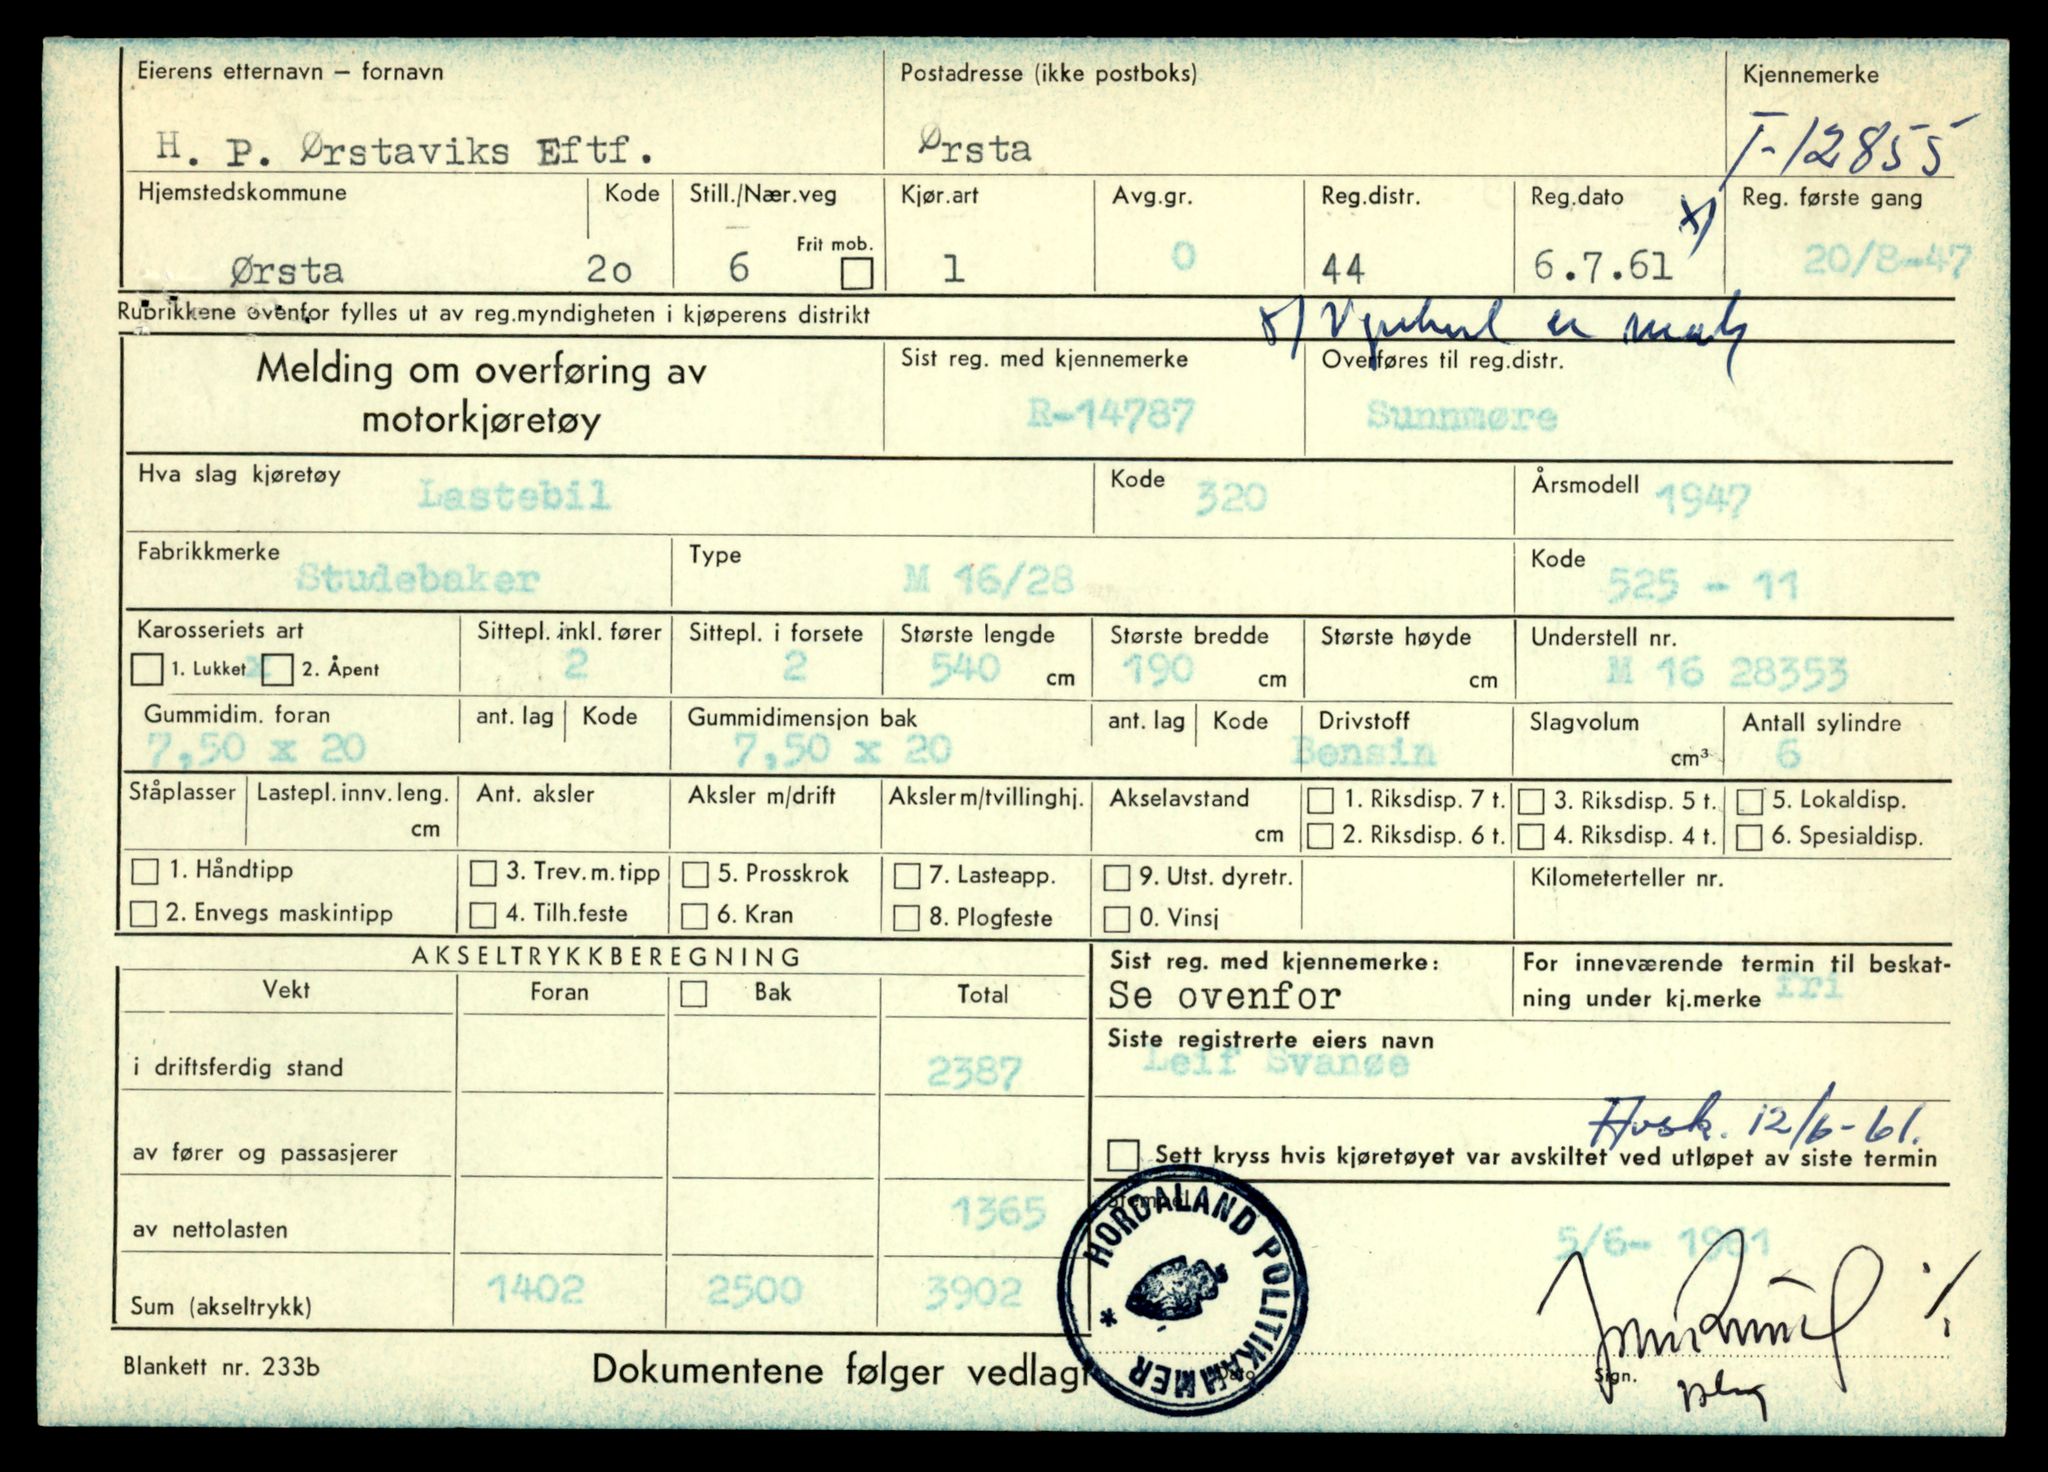 Eierens etternavn – fornavn
Postadresse (ikke postboks)
Kjennemerke
H. P. Ørstaviks Eftf.
Ørsta
T-12855
Hjemstedskommune
Kode
Still./Nær.veg
Kjør.art
Avg.gr.
Reg.distr.
Reg.dato
Reg. første gang
Frit mob.
Ørsta
20
6
1
0
44
6.7.61 x)
20/8-47
Rubrikkene ovenfor fylles ut av reg.myndigheten i kjøperens distrikt
x) er
Melding om overføring av
motorkjøretøy
Sist reg. med kjennemerke
R-14787
Overføres til reg.distr.
Sunnmøre
Hva slag kjøretøy
Lastebil
Kode
320
Årsmodell
1947
Fabrikkmerke
Studebaker
Type
M 16/28
Kode
525 - 11
Karosseriets art
Sittepl. inkl. fører
Sittepl. i forsete
Største lengde
Største bredde
Største høyde
Understell nr.
1. Lukket x 2. Åpent
2
2
540 cm
190 cm
cm
M 16 28353
Gummidim. foran
ant. lag
Kode
Gummidimensjon bak
ant. lag
Kode
Drivstoff
Slagvolum
Antall sylindre
7,50 x 20
7,50 x 20
Bensin
cm³
6
Ståplasser
Lastepl. innv. leng.
cm
Ant. aksler
Aksler m/drift
Aksler m/tvillinghj.
Akselavstand
cm
1. Riksdisp. 7 t.
3. Riksdisp. 5 t.
5. Lokaldisp.
2. Riksdisp. 6 t.
4. Riksdisp. 4 t.
6. Spesialdisp.
1. Håndtipp
3. Trev. m. tipp
5. Prosskrok
7. Lasteapp.
9. Utst. dyretr.
Kilometerteller nr.
2. Envegs maskintipp
4. Tilh.feste
6. Kran
8. Plogfeste
0. Vinsj
AKSELTRYKKBEREGNING
Vekt
Foran
Bak
Total
i driftsferdig stand
2387
av fører og passasjerer
av nettolasten
1365
Sum (akseltrykk)
1402
2500
3902
Sist reg. med kjennemerke:
Se ovenfor
For inneværende termin til beskat-
ning under kj.merke fri
Siste registrerte eiers navn
Leif Svanøe
Avsk. 12/6-61.
Sett kryss hvis kjøretøyet var avskiltet ved utløpet av siste termin
Stempel
HORDALAND POLITIKAMMER *
5/6- 1961
Dato
Sign.
Blankett nr. 233b
Dokumentene følger vedlagt